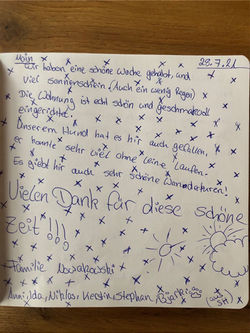 Moin 28.7.21
Wir haben eine schöne Woche gehabt, und
viel Sonnenschein. (Auch ein wenig Regen)
Die Wohnung ist echt schön und geschmackvoll
eingerichtet.
Unserem Hund hat es hir auch gefallen,
er konnte sehr viel ohne Leine laufen.
Es giebt hir auch sehr schöne Wanderturen!
Vielen Dank für diese schöne
Zeit!!!
Familie Nowakowski
Ann, Ida, Niklas, Kerstin, Stephan, Bjarki (aus SH)